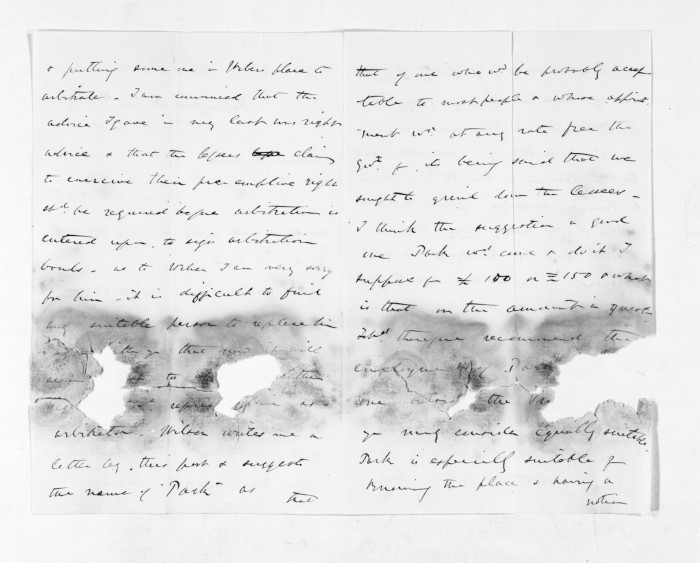 & putting some one in Weber's place to
arbitrate - I am convinced that the
advice I gave in my last was right
advice & that the lessees claim
to exercise their pre-emptive right
shd. be required before arbitration is
entered upon, to sign arbitration
bonds - as to Weber I am very sorry
for him - it is difficult to find
any suitable person to replace him
that now will
to
as
arbitrator. Wilson writes me a
letter by this post & suggests
the name of "Park" as
that
that of one who wd. be probably accep
table to most people & whose appoint-
ment wd. at any rate free the
Govt. fr. its being said that we
sought to grind down the lessees -
I think the suggestion a good
one Park wd. come & do it I
suppose for £100 or £150 & what
is that on the amount in quest.
I shd. therefore recommend the
employment of Park
one
yo may consider equally suitable.
Park is especially suitable fr
knowing the place & having a
notion